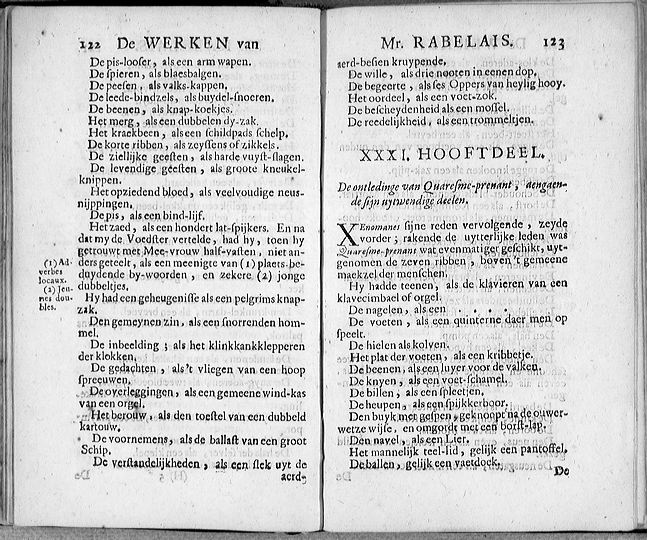 122 De WERKEN van
De pis-looser, als een arm wapen.
De spieren, als blaesbalgen.
De peesen, als valks-kappen.
De leede-bindzels, als buydel-snoeren.
De beenen, als knap-koekjes.
Het merg, als een dubbelen dy-zak.
Het kraekbeen, als een schildpads schelp.
De korte ribben, als zeyssens of zikkels.
De ziellijke geesten, als harde vuyst-slagen.
De levendige geesten, als groote kneukel-
knippen.
Het opziedend bloed, als veelvoudige neus-
nijppingen.
De pis, als een bind-lijf.
Het zaed, als een hondert lat-spijkers. En na
dat my de Voedster vertelde, had hy, toen hy
getrouwt met Mee-vrouw half-vasten, niet an-
ders geteelt, als een meenigte van (1) plaets-be-
duydende by-woorden, en zekere (2) jonge
dubbeltjes.
(1) Ad-
verbes
locaux.
(2) Jeu-
nes dou-
bles.
Hy had een geheugenisse als een pelgrims knap-
zak.
Den gemeynen zin, als een snorrenden hom-
mel.
De inbeelding; als het klinkkankklepperen
der klokken.
De gedachten, als 't vliegen van een hoop
spreeuwen.
De overleggingen, als een gemeene wind-kas
van een orgel.
Het berouw, als den toestel van een dubbeld
kartouw.
De voornemens, als de ballast van een groot
Schip.
De verstandelijkheden, als een slek uyt de
aerd-
Mr. RABELAIS. 123
aerd-besien kruypende.
De wille, als drie nooten in eenen dop.
De begeerte, als ses Oppers van heylig hooy.
Het oordeel, als een voet-zok.
De bescheydenheid als een mossel.
De reedelijkheid, als een trommeltjen.
XXXI. HOOFTDEEL.
De ontledinge van Quaresme-prenant, aengaen-
de sijn uytwendige deelen.
XEnomanes sijne reden vervolgende, zeyde
vorder; rakende de uytterlijke leden was
Quaresme-prenant wat evenmatiger geschikt, uyt-
genomen de zeven ribben, boven 't gemeene
maekzel der menschen.
Hy hadde teenen, als de klavieren van een
klavecimbael of orgel.
De nagelen, als een . . . .
De voeten, als een quinterne daer men op
speelt.
De hielen als kolven.
Het plat der voeten, als een kribbetje.
De beenen, als een luyer voor de valken.
De knyen, als een voet-schamel.
De billen, als een spleetjen.
De heupen, als een spijkkerboor.
Den buyk met gespen, geknoopt na de ouwer-
wetze wijse, en omgordt met een borst-lap.
Den navel, als een Lier.
Het mannelijk teel-lid, gelijk een pantoffel.
De ballen, gelijk een vaetdoek.
De